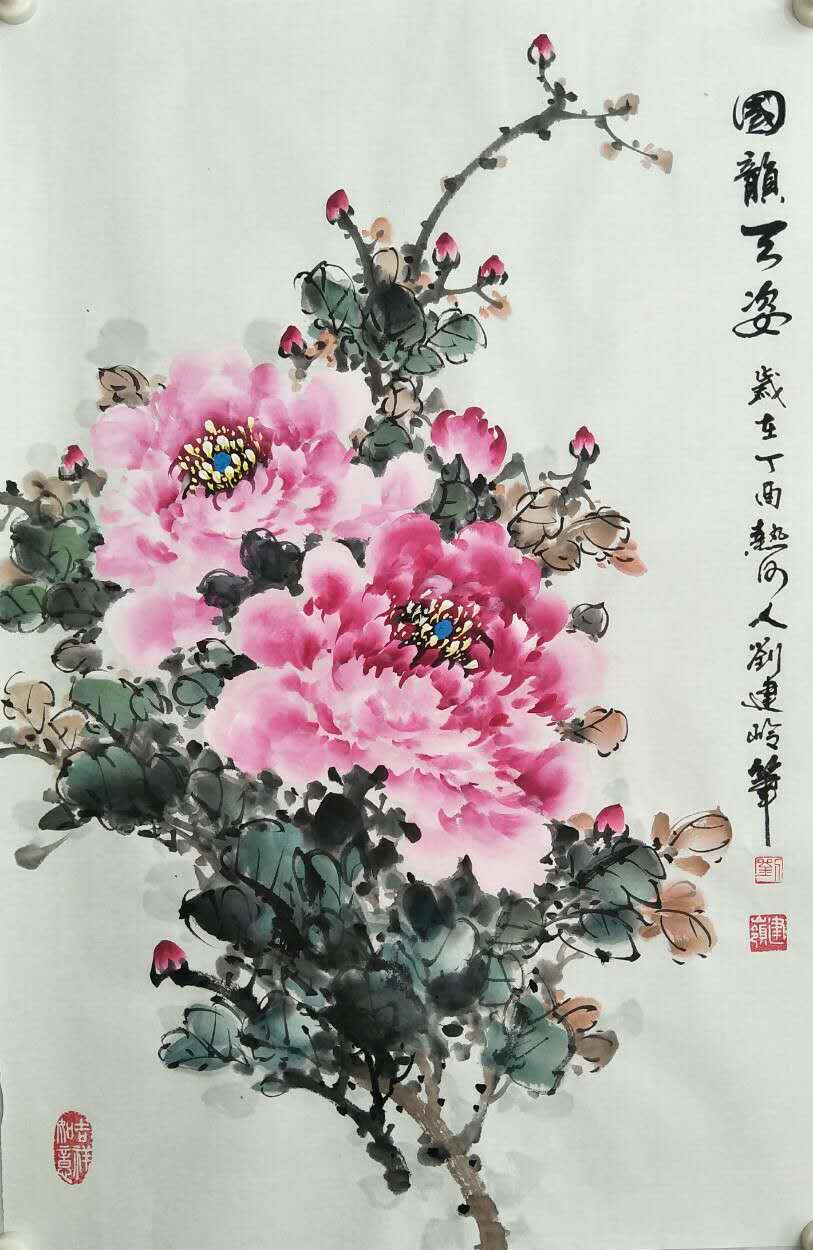 國韻天姿
歲在丁酉熱河人劉建岭筆
劉
建嶺
吉祥如意